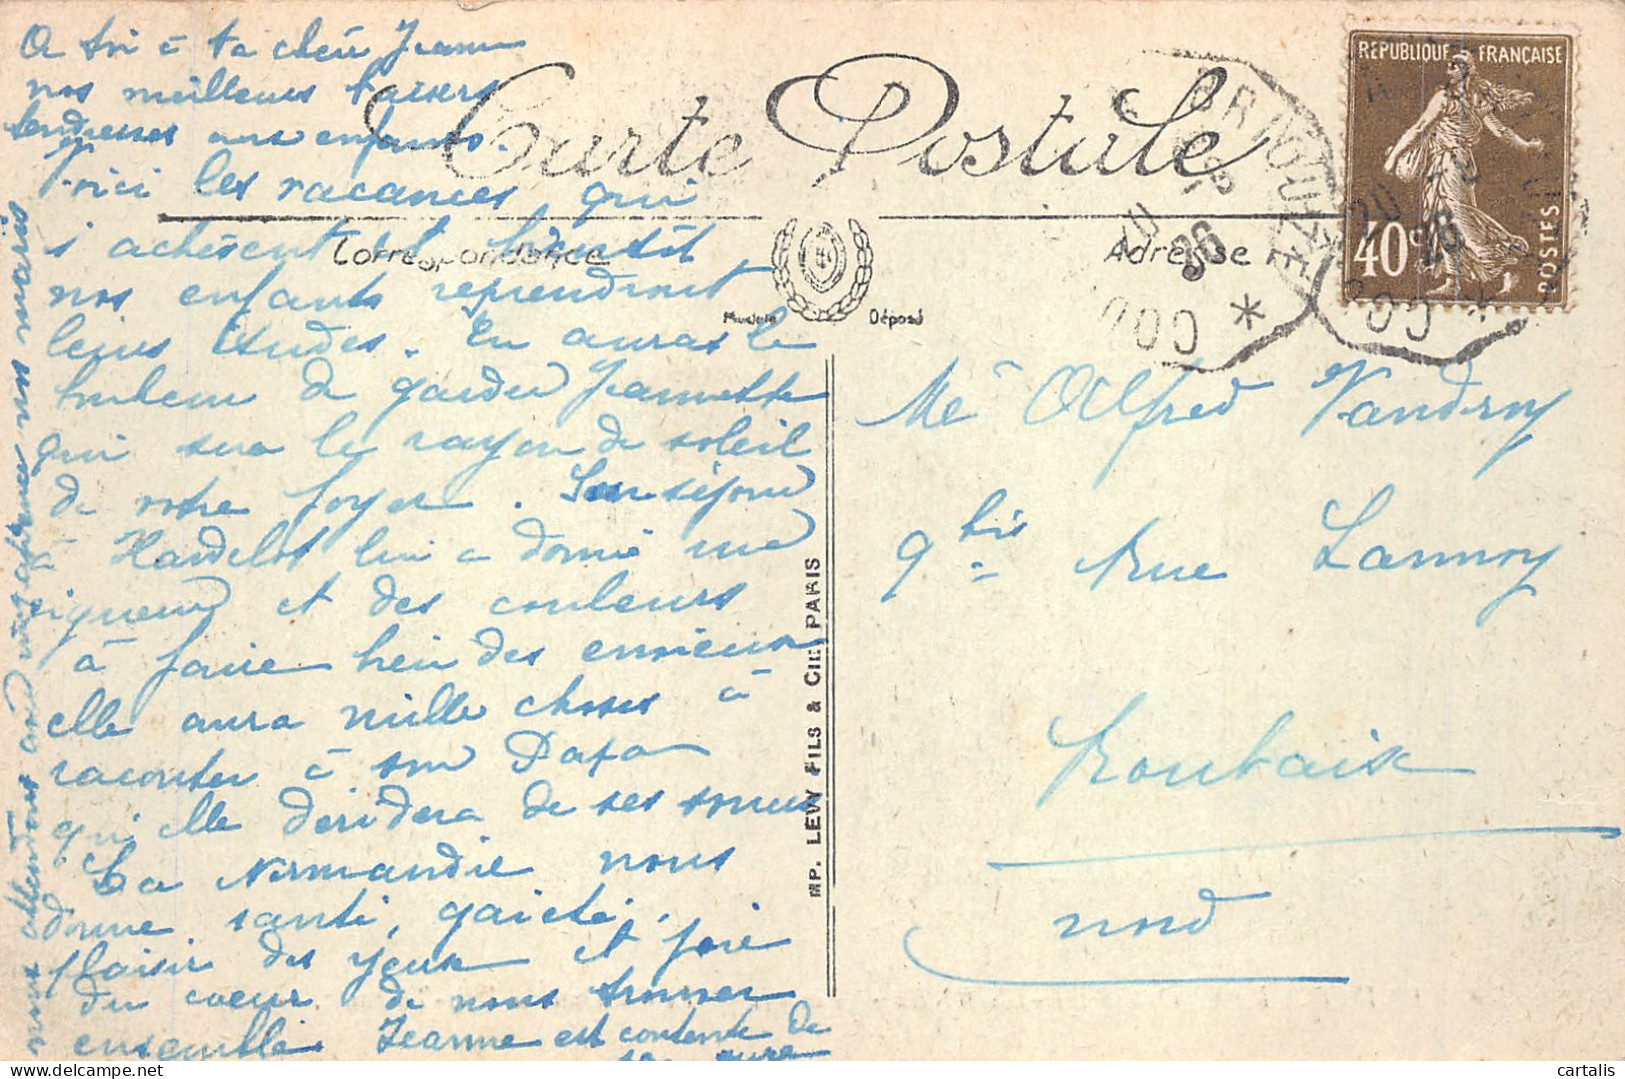 A toi à ta chère Jeanne
nos meilleurs baisers
tendresses aux enfants.
Voici les vacances qui
s'achèvent et bientôt
nos enfants reprendront
leurs études. Tu auras le
bonheur de garder Jeannette
qui sera le rayon de soleil
de votre foyer. Son séjour
à Hardelot lui a donné une
vigueur et des couleurs
à faire bien des envieux
elle aura mille choses à
raconter à son Papa
qu'elle déridera de ses
La Normandie nous
donne santé, gaieté,
plaisir des yeux et joie
du coeur de nous trouver
ensemble. Jeanne est contente de
sa cure
nous attendons
Carte Postale
Correspondance
Adresse
Modèle Déposé
REPUBLIQUE FRANÇAISE
40c
POSTES
26
MP. LEVY FILS & CIE PARIS
Me Alfred Vandroy
9 bis Rue Lannoy
Roubaix
Nord
© cartalis - Delcampe.net